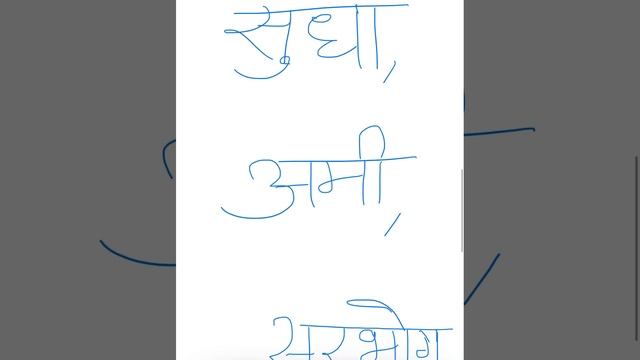 सुधा,
अमी,
सुरभोग